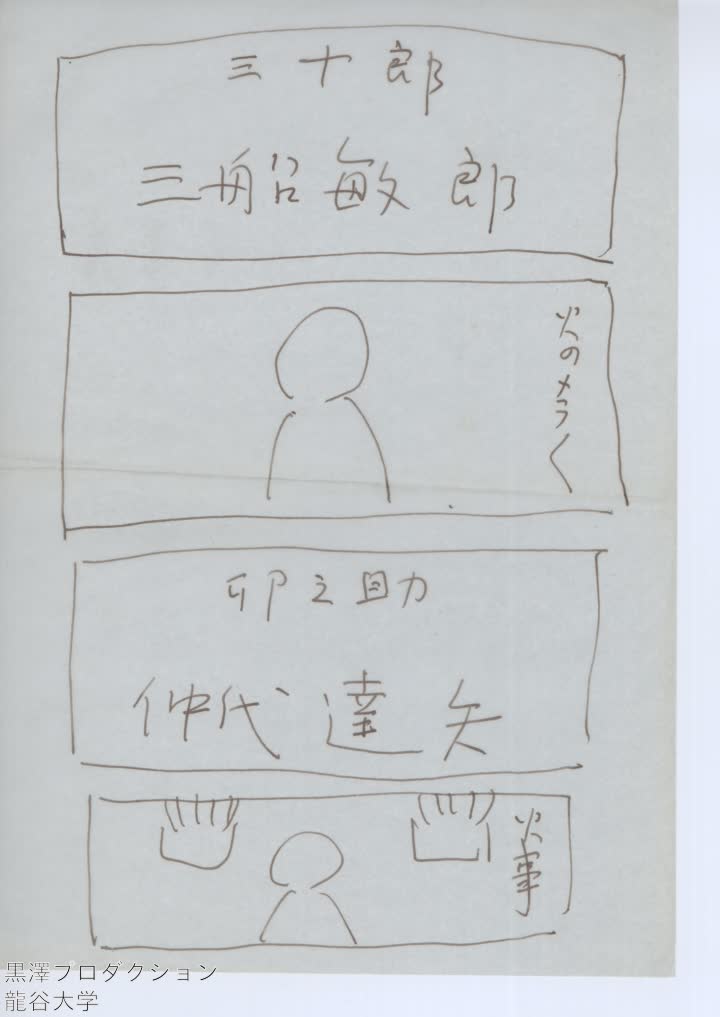 三十郎
三船敏郎
火のメラく
卯之助
仲代達矢
火事
黒澤プロダクション
龍谷大学